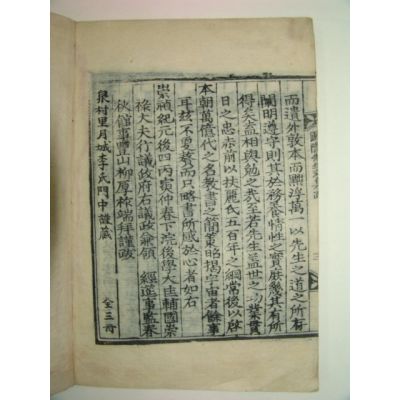 而遺外敦本而黜浮萬一以先生之道之所存
闡明遵守則其於務養情性之實庶幾其有所
得矣盍相與勉之哉至若先生盖世之功業貫
日之忠赤前以扶麗氏五百年之綱常後以啓
本朝萬億代之名教書之簡策昭揭宇宙者餘事
耳玆不更贅而只略書所感於心者如右
崇禎紀元後四丙寅仲春下浣後學大匡輔國崇
祿大夫行議政府右議政兼領 經筵事監春
秋館事豐山柳厚祚端拜謹跋
良村里月城李氏門中謹藏
全三冊